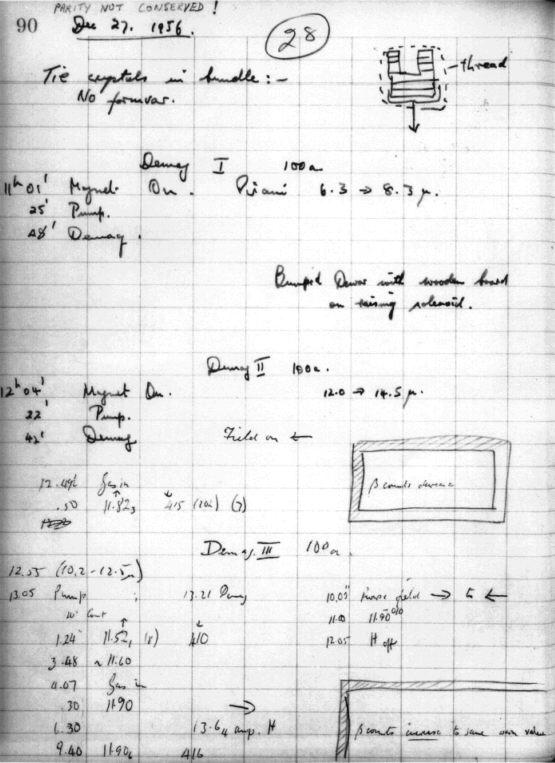 PARITY NOT CONSERVED !
90 Dec 27. 1956. 28
Tie crystals in bundle :-
No formvar.
thread
Demag I 100a
11h 01' Magnet On. Pirani 6.3 → 8.3 μ.
25' Pump.
48' Demag.
Bumped Dewar with wooden board
on raising solenoid.
Demag II 100a.
12h 04' Magnet On. 12.0 → 14.5 μ.
22' Pump.
42' Demag Field on ←
12.49½ Gas in
β counts decrease
.50 11.823 415 (3)
Demag. III 100a.
12.55 (10.2 - 12.5μ)
13.05 Pump 13.21 Demag 10.05 field → to ←
11.00 11.90
1.24 11.521 410 12.05 H off
3.48 ~ 11.60
4.07 Gas in
.30 11.90 →
6.30 13.64 amp. H
β counts increase to same warm value
9.40 11.906 416